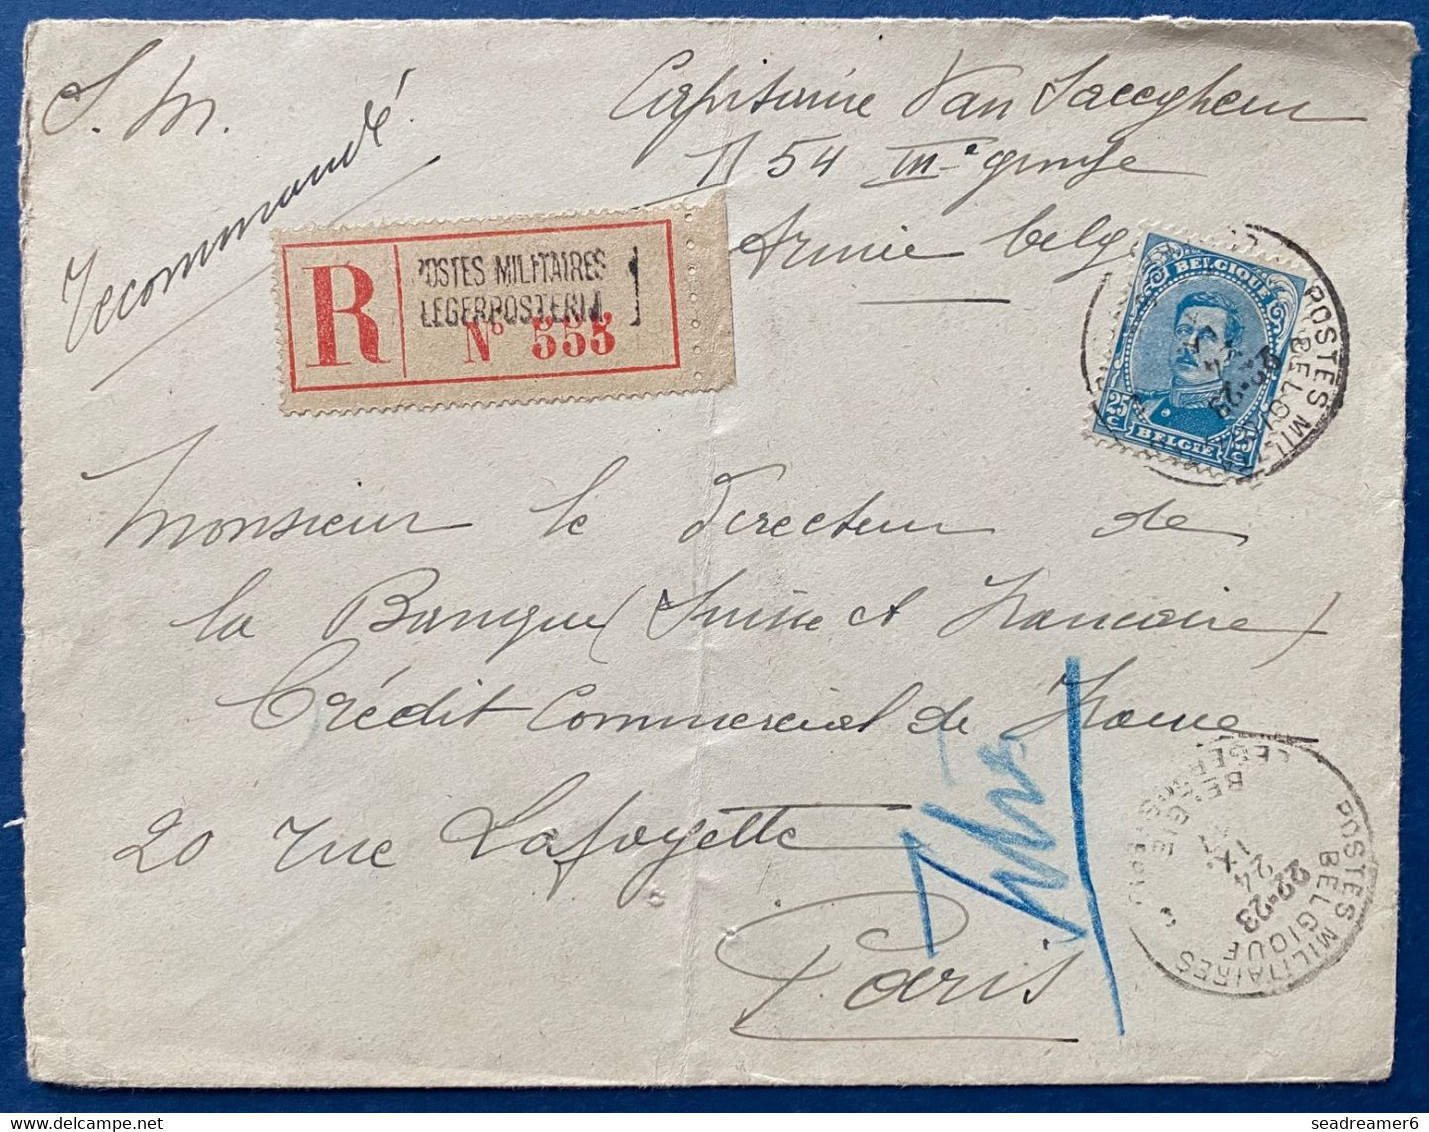 S. M.
Recommandé
Capitaine Van
54 IIIe groupe
Armée belge
R
POSTES MILITAIRES
LEGERPOSTERIJ 1
N° 555
BELGIQUE
25 C 25 C
BELGIË
POSTES MILITAIRES
BELGIQUE
22-23
Monsieur le Directeur de
la Banque (Suisse et Française)
Crédit Commercial de France
20 rue Lafayette
Paris
POSTES MILITAIRES
BELGIQUE
22-23
24
IX
17
BELGIE
seadreamer6